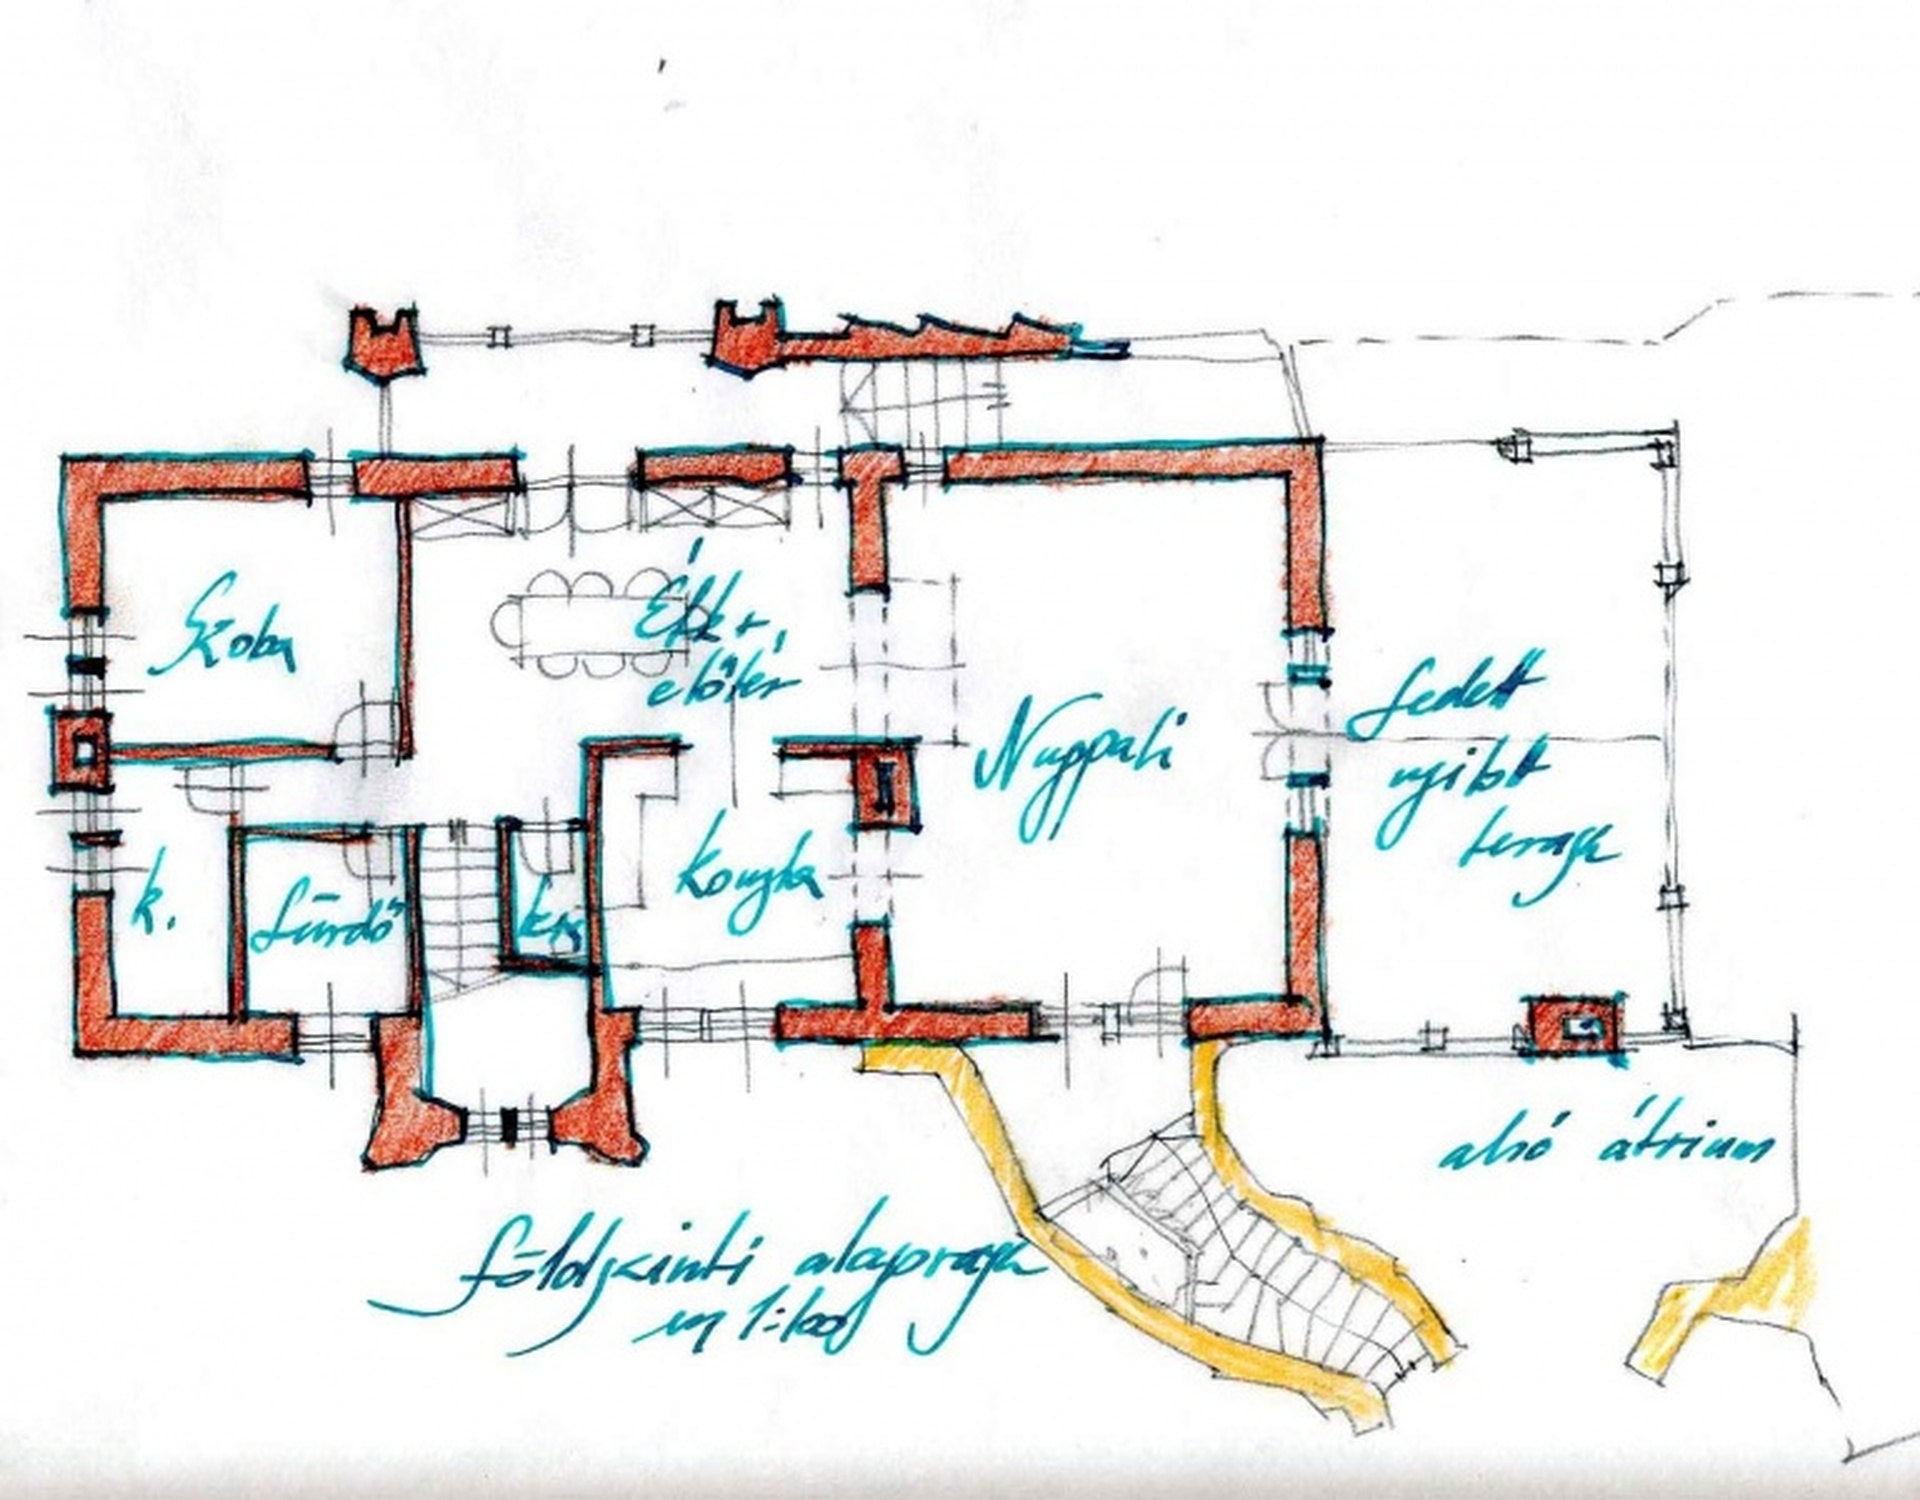 Szoba
Étker,
előtér
Nappali
fedett
nyitott
terasz
k.
fürdő
konyha
alsó átrium
földszinti alaprajz
m 1:100